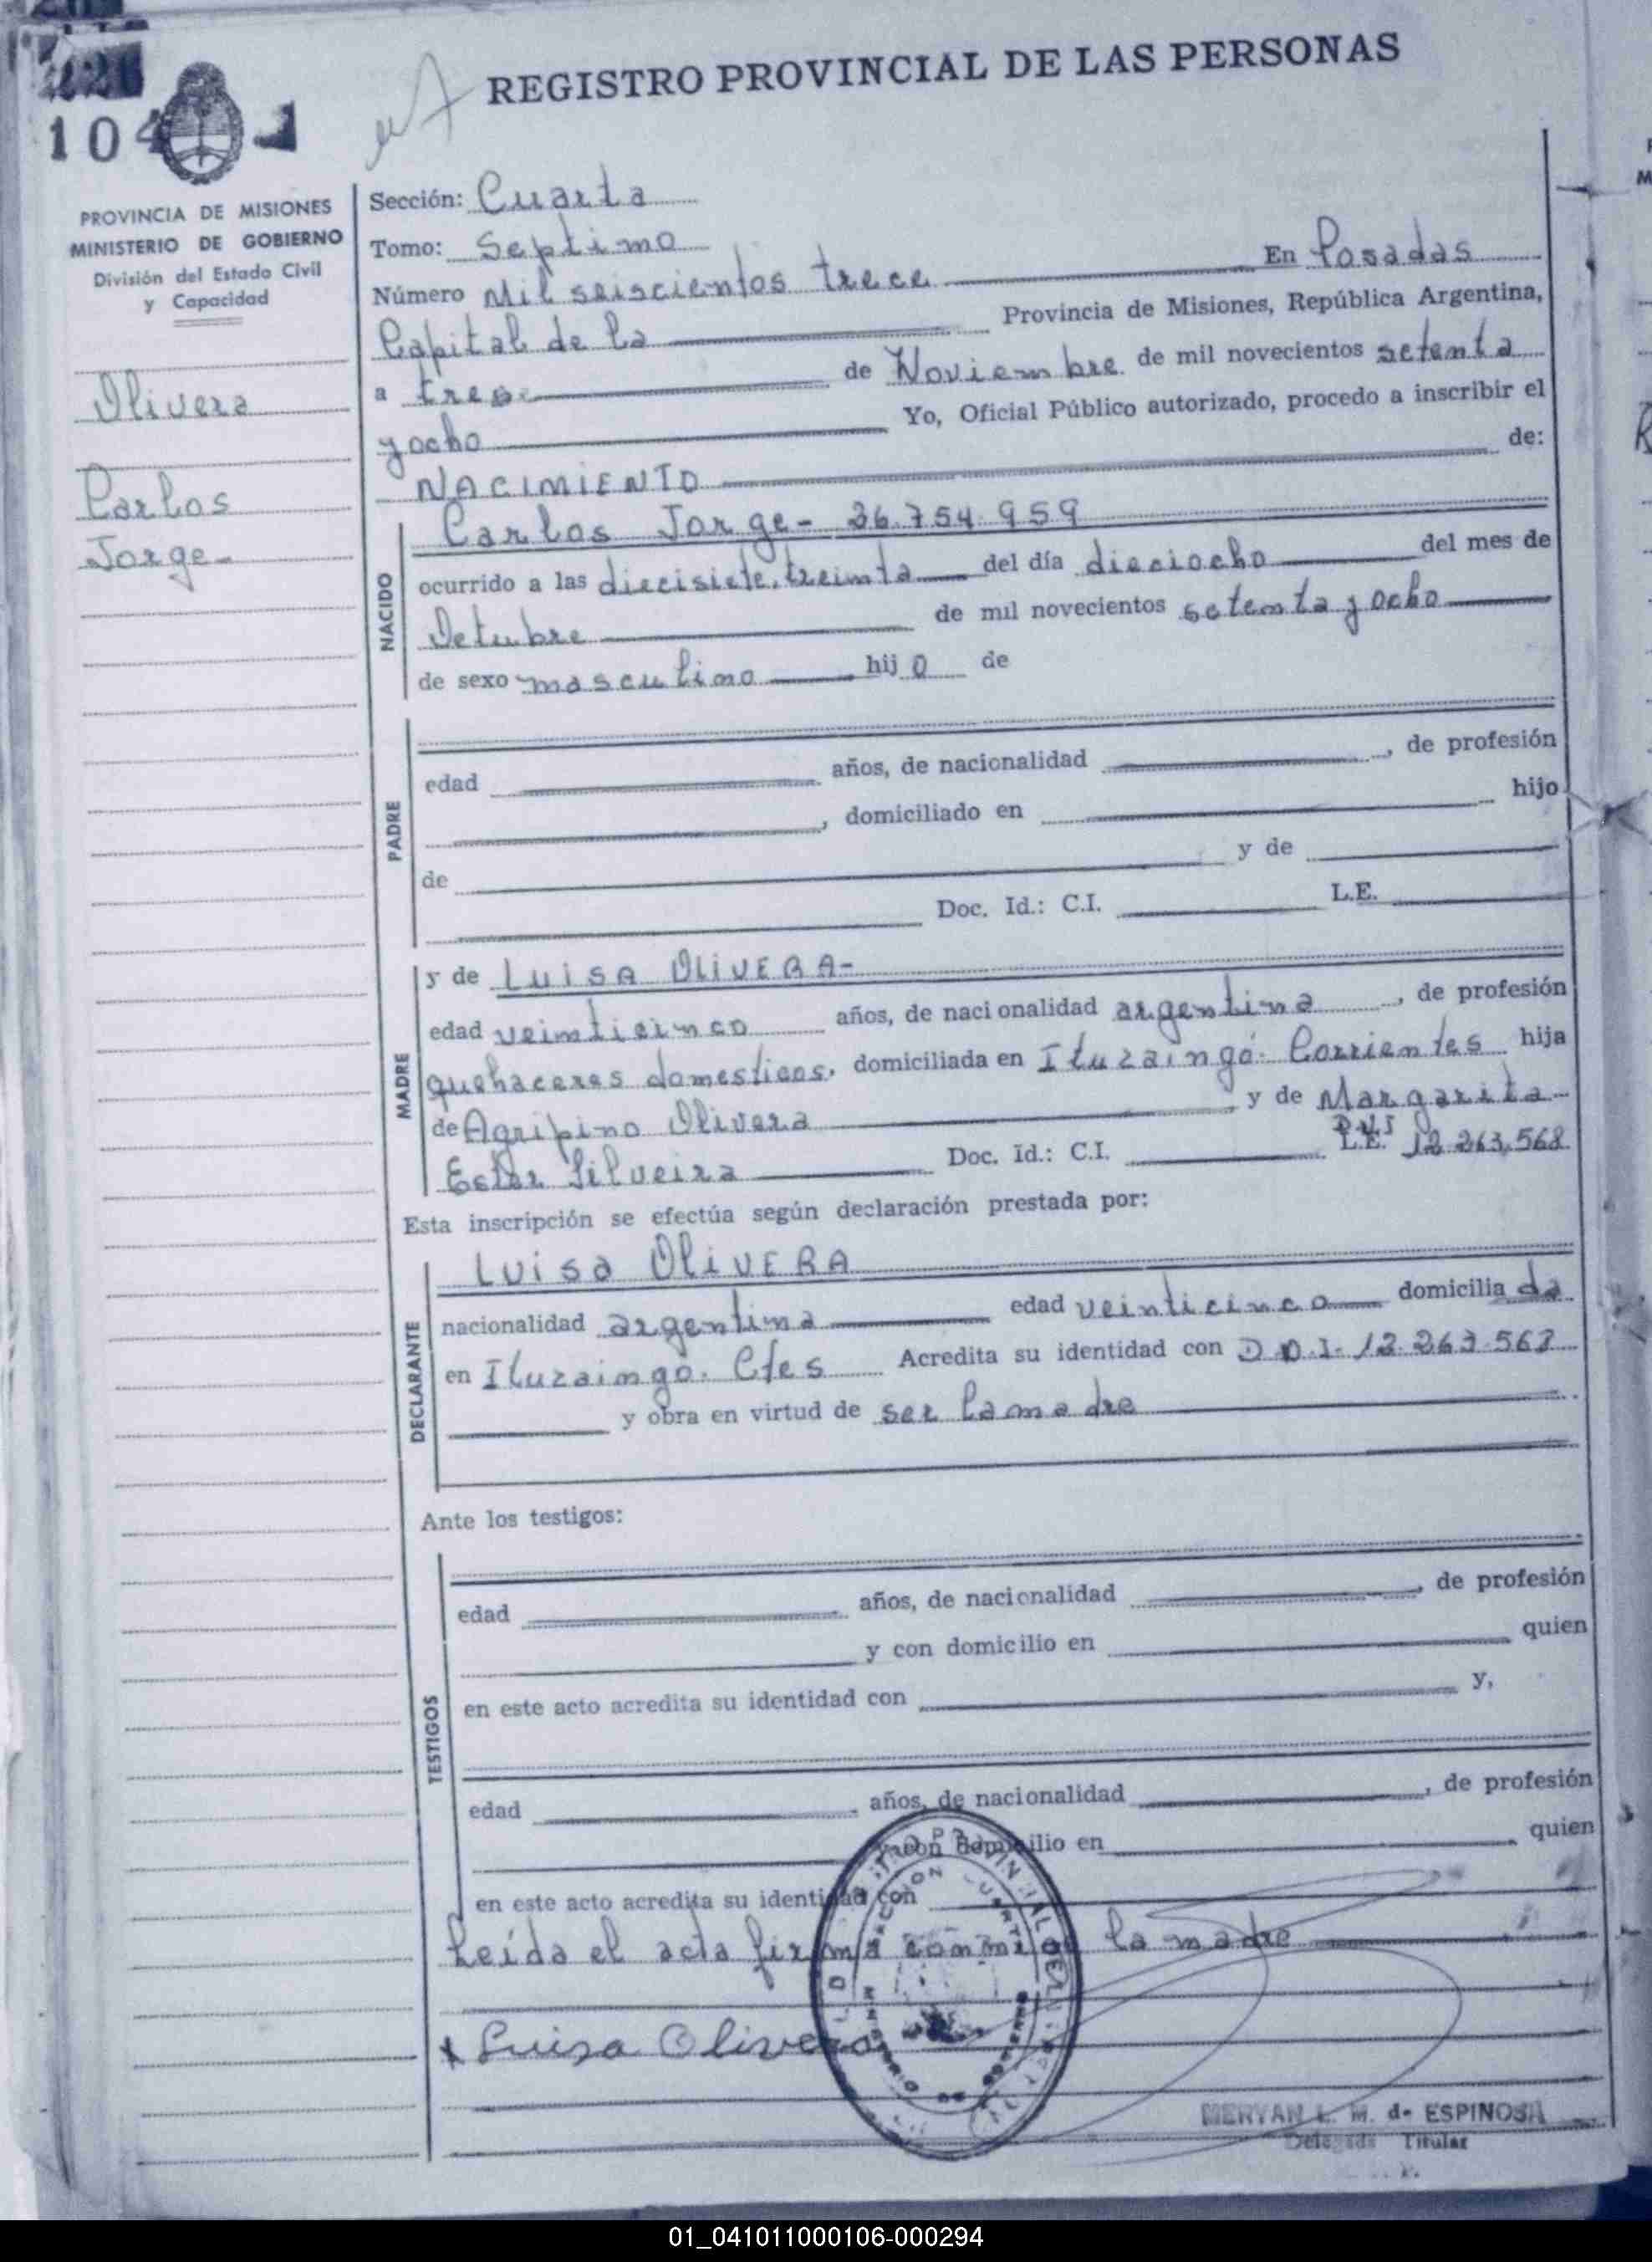 REGISTRO PROVINCIAL DE LAS PERSONAS
104
PROVINCIA DE MISIONES
MINISTERIO DE GOBIERNO
División del Estado Civil
y Capacidad
Olivera
Carlos
Jorge-
Sección: Cuarta
Tomo: Septimo
Número Mil seiscientos trece En Posadas
Capital de la Provincia de Misiones, República Argentina,
a trece de Noviembre de mil novecientos setenta
y ocho Yo, Oficial Público autorizado, procedo a inscribir el
NACIMIENTO de:
NACIDO
Carlos Jorge- 26.754.959
ocurrido a las diecisiete, treinta del día dieciocho del mes de
Octubre de mil novecientos setenta y ocho
de sexo masculino hijo de
PADRE
edad años, de nacionalidad , de profesión
, domiciliado en hijo
de y de
Doc. Id.: C.I. L.E.
MADRE
y de LUISA OLIVERA-
edad veinticinco años, de nacionalidad argentina , de profesión
quehaceres domesticos, domiciliada en Ituzaingó: Corrientes hija
de Agripino Olivera y de Margarita
Ester Silveira Doc. Id.: C.I. L.E. DNI 12.263.568
Esta inscripción se efectúa según declaración prestada por:
DECLARANTE
LUISA OLIVERA
nacionalidad argentina edad veinticinco domiciliada
en Ituzaingo. Ctes Acredita su identidad con D.N.I. 12.263.563
y obra en virtud de ser la madre
Ante los testigos:
TESTIGOS
edad años, de nacionalidad , de profesión
y con domicilio en quien
en este acto acredita su identidad con y,
edad años, de nacionalidad , de profesión
y con domicilio en quien
en este acto acredita su identidad con
Leída el acta firma conmigo la madre
x Luisa Olivera
MERYAN L. M. de ESPINOSA
Delegada Titular
01_041011000106-000294